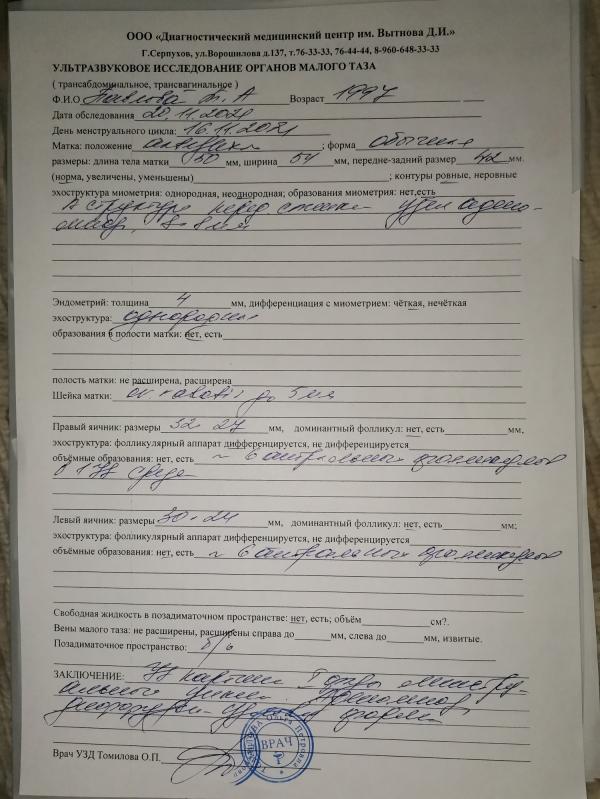 ООО «Диагностический медицинский центр им. Вытнова Д.И.»
Г.Серпухов, ул.Ворошилова д.137, т.76-33-33, 76-44-44, 8-960-648-33-33
УЛЬТРАЗВУКОВОЕ ИССЛЕДОВАНИЕ ОРГАНОВ МАЛОГО ТАЗА
( трансабдоминальное, трансвагинальное )
Ф.И.О. Павлова А Возраст 1997
Дата обследования 20.11.2021
День менструального цикла: 16.11.2021
Матка: положение антефлексио ; форма обычная
размеры: длина тела матки 50 мм, ширина 54 мм, передне-задний размер 42 мм.
(норма, увеличены, уменьшены) ; контуры ровные, неровные
эхоструктура миометрия: однородная, неоднородная; образования миометрия: нет,есть
В структуре перед стенки узел
8 мм
Эндометрий: толщина 4 мм, дифференциация с миометрием: чёткая, нечёткая
эхоструктура: однородный
образования в полости матки: нет, есть
полость матки: не расширена, расширена
Шейка матки: до 5 мм
Правый яичник: размеры 32 27 мм, доминантный фолликул: нет, есть мм,
эхоструктура: фолликулярный аппарат дифференцируется, не дифференцируется
объёмные образования: нет, есть ~ 6 антральных фолликулов
в 1 УЗ срезе
Левый яичник: размеры 30-24 мм, доминантный фолликул: нет, есть мм;
эхоструктура: фолликулярный аппарат дифференцируется, не дифференцируется
объёмные образования: нет, есть ~ 6 антральных фолликулов
Свободная жидкость в позадиматочном пространстве: нет, есть; объём см?.
Вены малого таза: не расширены, расширены справа до мм, слева до мм, извитые.
Позадиматочное пространство: б/о
ЗАКЛЮЧЕНИЕ: УЗ картина I фазы менстру-
ального цикла. Аденомиоз,
форма
Врач УЗД Томилова О.П.
ВРАЧ